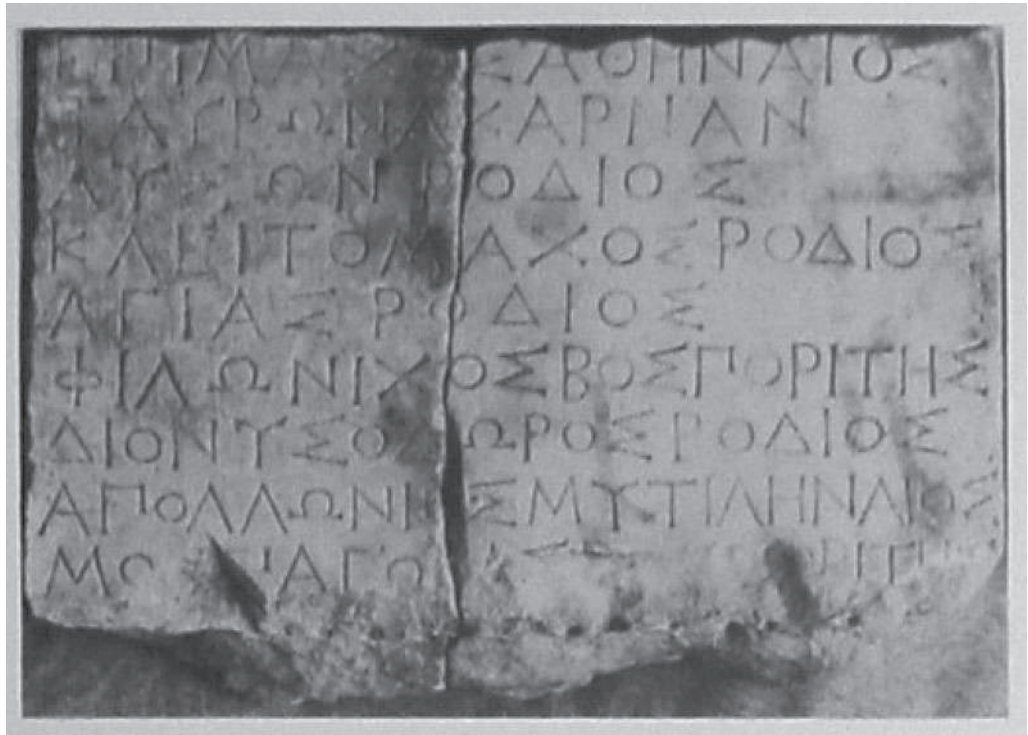 ΕΠΙΜΑΧΟΣ ΑΘΗΝΑΙΟΣ
ΤΑΥΡΩΝ ΑΚΑΡΝΑΝ
ΛΥΣΩΝ ΡΟΔΙΟΣ
ΚΛΕΙΤΟΜΑΧΟΣ ΡΟΔΙΟΣ
ΑΓΙΑΣ ΡΟΔΙΟΣ
ΦΙΛΩΝΙΧΟΣ ΒΟΣΠΟΡΙΤΗΣ
ΔΙΟΝΥΣΟΔΩΡΟΣ ΡΟΔΙΟΣ
ΑΠΟΛΛΩΝΙΟΣ ΜΥΤΙΛΗΝΑΙΟΣ